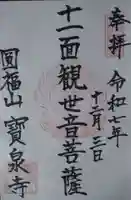 奉拝
令和七年
十二月三日
十一面観世音菩薩
圓福山
寳泉寺